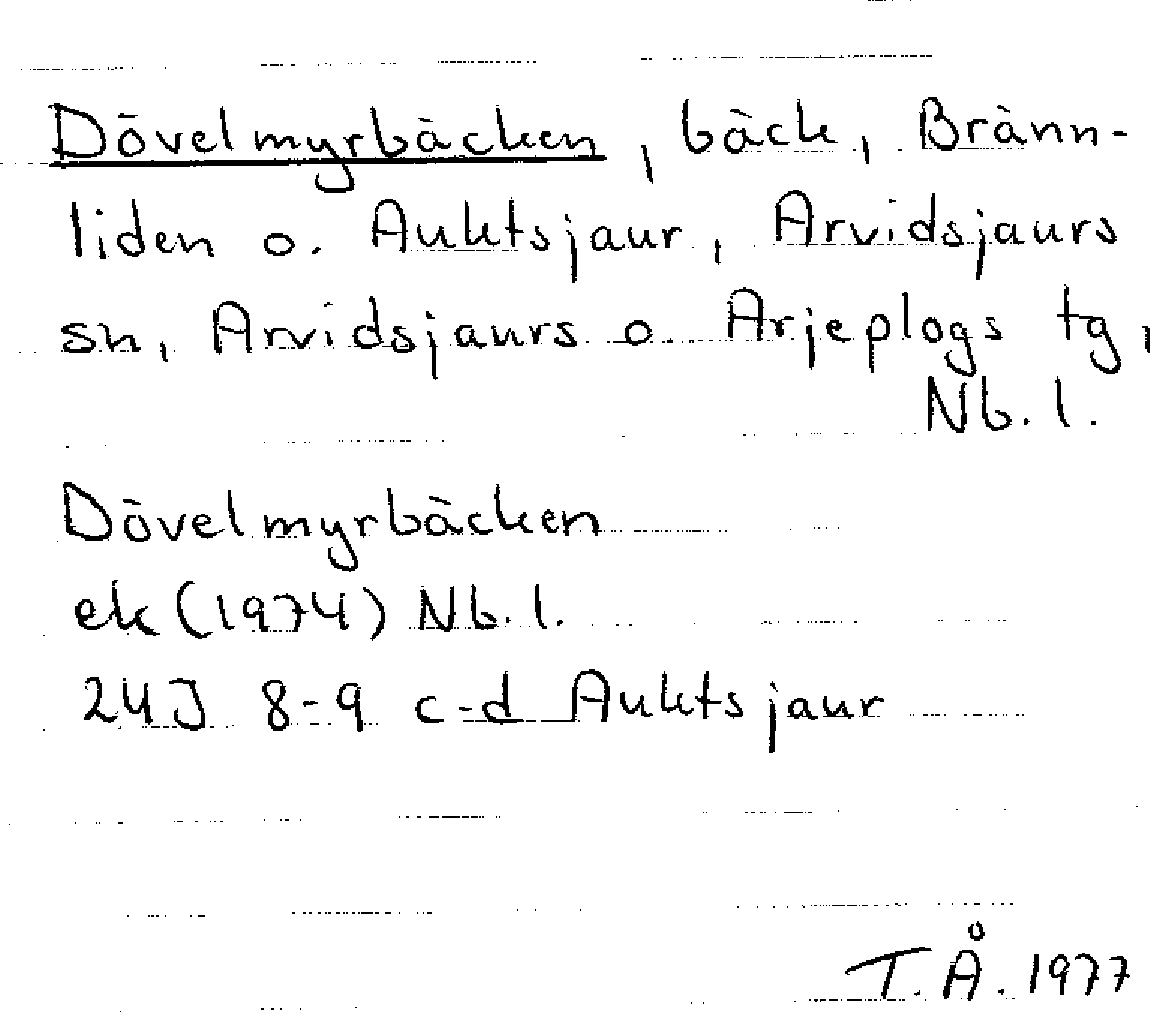 Dövelmyrbäcken, bäck, Bränn-
liden o. Auktsjaur, Arvidsjaurs
sn, Arvidsjaurs o. Arjeplogs tg,
Nb. l.
Dövelmyrbäcken
ek (1974) Nb. l.
24J 8-9 c-d Auktsjaur
T. Å. 1977